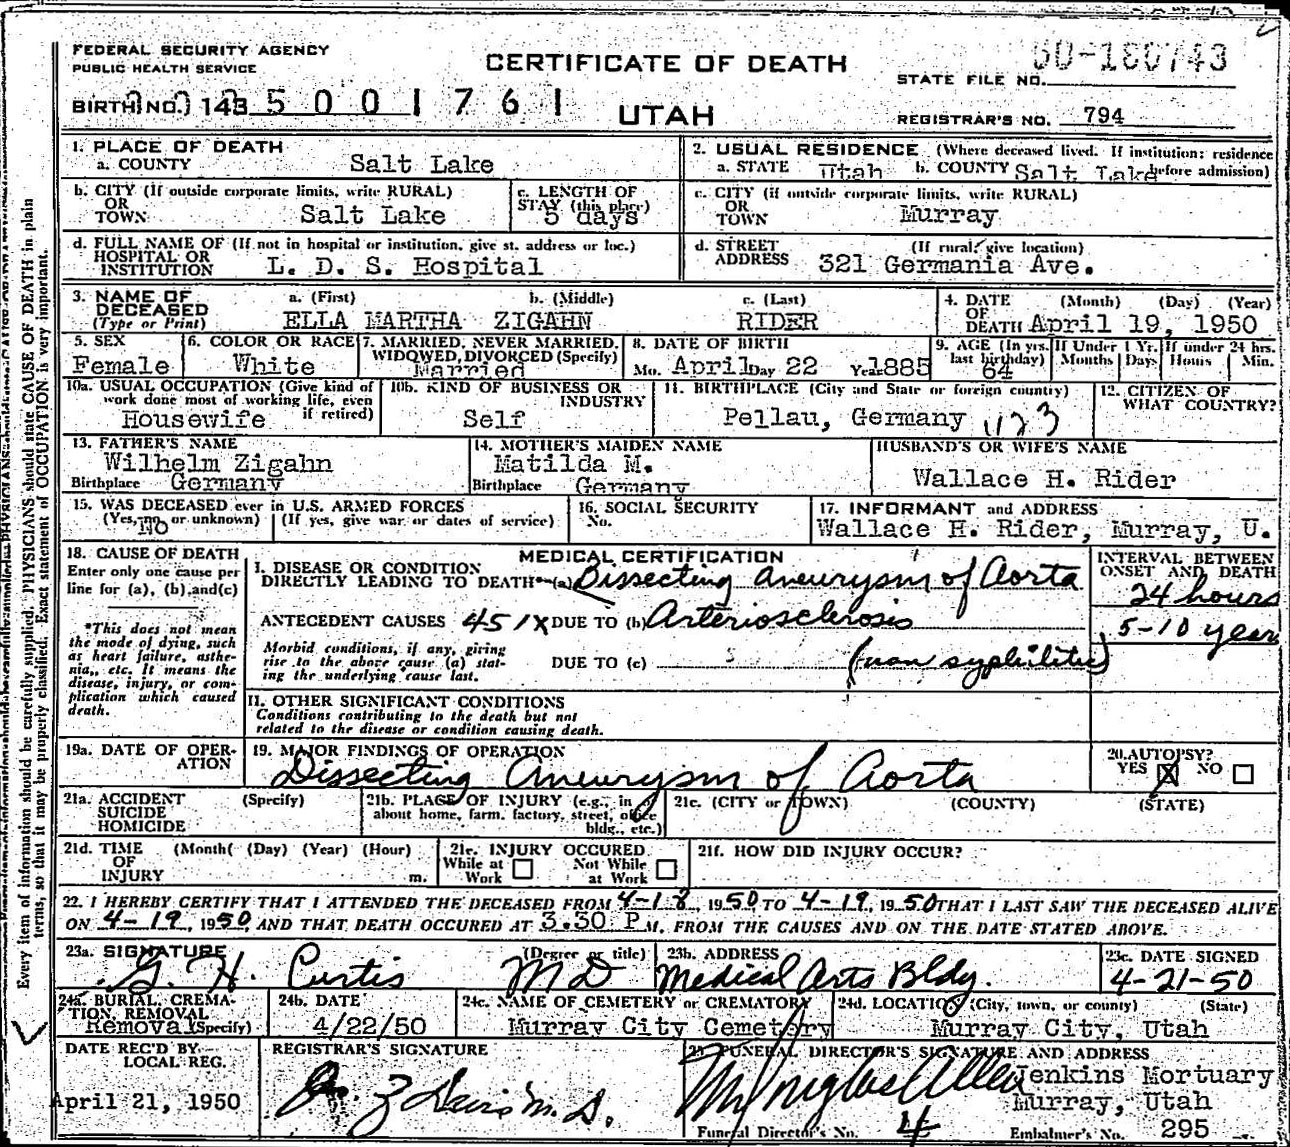 FEDERAL SECURITY AGENCY
PUBLIC HEALTH SERVICE
CERTIFICATE OF DEATH
UTAH
STATE FILE NO.
BIRTH NO. 143 5 0 0 1 7 6 1
REGISTRAR'S NO. 794
Every item of information should be carefully supplied. PHYSICIANS should state CAUSE OF DEATH in plain
terms, so that it may be properly classified. Exact statement of OCCUPATION is very important.
1. PLACE OF DEATH
a. COUNTY Salt Lake
2. USUAL RESIDENCE (Where deceased lived. If institution: residence before admission)
a. STATE Utah b. COUNTY Salt Lake
b. CITY (If outside corporate limits, write RURAL)
OR
TOWN Salt Lake
c. LENGTH OF
STAY (this place)
5 days
c. CITY (if outside corporate limits, write RURAL)
OR
TOWN Murray
d. FULL NAME OF (If not in hospital or institution, give st. address or loc.)
HOSPITAL OR
INSTITUTION L. D. S. Hospital
d. STREET (If rural, give location)
ADDRESS 321 Germania Ave.
3. NAME OF DECEASED
(Type or Print)
a. (First) b. (Middle) c. (Last)
ELLA MARTHA ZIGAHN RIDER
4. DATE OF DEATH (Month) (Day) (Year)
April 19, 1950
5. SEX
Female
6. COLOR OR RACE
White
7. MARRIED, NEVER MARRIED,
WIDOWED, DIVORCED (Specify)
Married
8. DATE OF BIRTH
Mo. April Day 22 Year 1885
9. AGE (In yrs. last birthday) 64
If Under 1 Yr. Months Days
If under 24 hrs. Hours Min.
10a. USUAL OCCUPATION (Give kind of
work done most of working life, even
if retired)
Housewife
10b. KIND OF BUSINESS OR
INDUSTRY
Self
11. BIRTHPLACE (City and State or foreign country)
Pellau, Germany 1123
12. CITIZEN OF
WHAT COUNTRY?
13. FATHER'S NAME
Wilhelm Zigahn
Birthplace Germany
14. MOTHER'S MAIDEN NAME
Matilda M.
Birthplace Germany
HUSBAND'S OR WIFE'S NAME
Wallace H. Rider
15. WAS DECEASED ever in U.S. ARMED FORCES
(Yes, no, or unknown) (If yes, give war or dates of service)
No
16. SOCIAL SECURITY
No.
17. INFORMANT and ADDRESS
Wallace H. Rider, Murray, U.
18. CAUSE OF DEATH
Enter only one cause per
line for (a), (b) and (c)
*This does not mean
the mode of dying, such
as heart failure, asthe-
nia, etc. It means the
disease, injury, or com-
plication which caused
death.
MEDICAL CERTIFICATION
I. DISEASE OR CONDITION
DIRECTLY LEADING TO DEATH* (a) Dissecting Aneurysm of Aorta
ANTECEDENT CAUSES 451X DUE TO (b) Arteriosclerosis
Morbid conditions, if any, giving
rise to the above cause (a) stat-
ing the underlying cause last.
DUE TO (c) (non syphilitic)
INTERVAL BETWEEN
ONSET AND DEATH
24 hours
5-10 years
II. OTHER SIGNIFICANT CONDITIONS
Conditions contributing to the death but not
related to the disease or condition causing death.
19a. DATE OF OPER-
ATION
19. MAJOR FINDINGS OF OPERATION
Dissecting Aneurysm of Aorta
20. AUTOPSY?
YES X NO
21a. ACCIDENT (Specify)
SUICIDE
HOMICIDE
21b. PLACE OF INJURY (e.g., in or
about home, farm, factory, street, office
bldg., etc.)
21c. (CITY or TOWN) (COUNTY) (STATE)
21d. TIME (Month) (Day) (Year) (Hour)
OF
INJURY m.
21e. INJURY OCCURED
While at Work Not While at Work
21f. HOW DID INJURY OCCUR?
22. I HEREBY CERTIFY THAT I ATTENDED THE DECEASED FROM 4-18, 1950 TO 4-19, 1950 THAT I LAST SAW THE DECEASED ALIVE
ON 4-19, 1950, AND THAT DEATH OCCURED AT 3.30 P M, FROM THE CAUSES AND ON THE DATE STATED ABOVE.
23a. SIGNATURE (Degree or title)
G. H. Curtis MD
23b. ADDRESS
Medical Arts Bldg.
23c. DATE SIGNED
4-21-50
24a. BURIAL, CREMA-
TION, REMOVAL
Removal (Specify)
24b. DATE
4/22/50
24c. NAME OF CEMETERY or CREMATORY
Murray City Cemetery
24d. LOCATION (City, town, or county) (State)
Murray City, Utah
DATE REC'D BY
LOCAL REG.
April 21, 1950
REGISTRAR'S SIGNATURE
25. FUNERAL DIRECTOR'S SIGNATURE AND ADDRESS
Jenkins Mortuary
Murray, Utah
Funeral Director's No. 4
Embalmer's No. 295